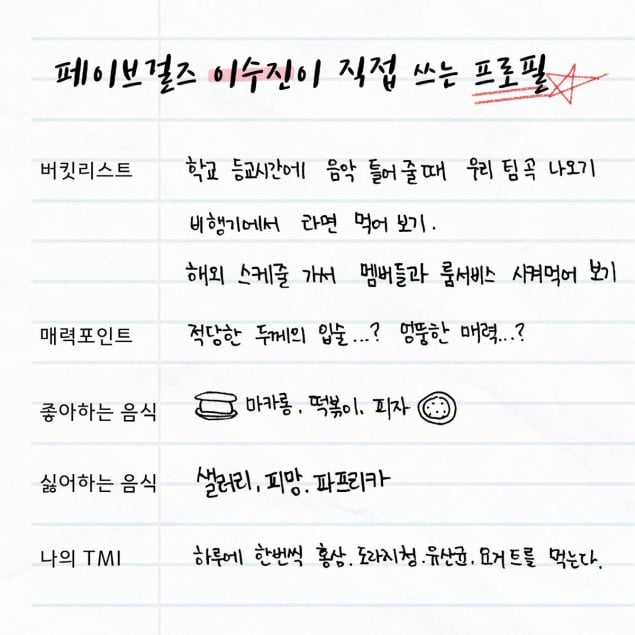 페이브걸즈 이수진이 직접 쓰는 프로필
버킷리스트 학교 등교시간에 음악 틀어줄때 우리 팀 곡 나오기
비행기에서 라면 먹어 보기.
해외 스케줄 가서 멤버들과 룸서비스 시켜먹어 보기
매력포인트 적당한 두께의 입술...? 엉뚱한 매력...?
좋아하는 음식 마카롱, 떡볶이, 피자
싫어하는 음식 샐러리, 피망, 파프리카
나의 TMI 하루에 한번씩 홍삼, 도라지청, 유산균, 요거트를 먹는다.